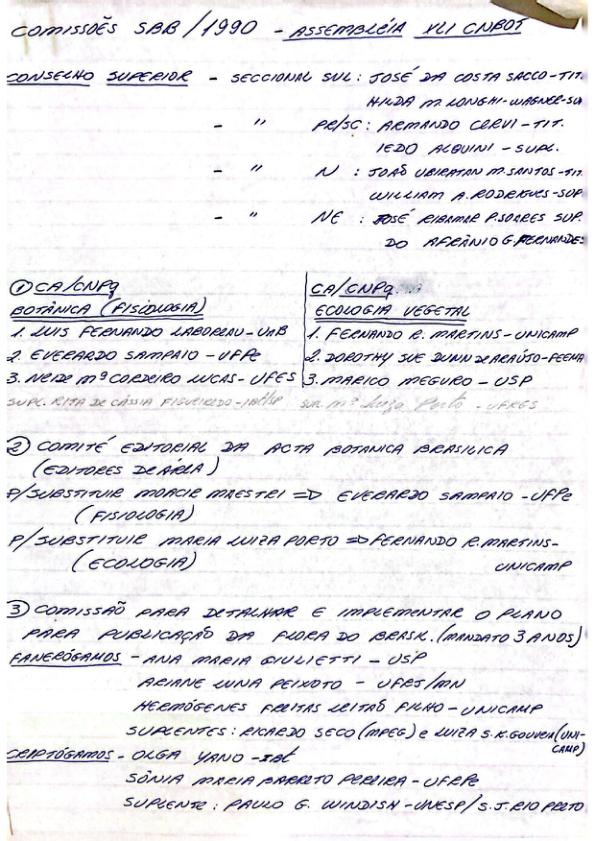 COMISSÕES SBB/1990 - ASSEMBLÉIA XLI CNBOT
CONSELHO SUPERIOR - SECCIONAL SUL: JOSÉ DA COSTA SACCO-TIT.
HILDA M. LONGHI-WAGNER-SU
- " PR/SC: ARMANDO CERVI-TIT.
IEDO ALQUINI - SUPL.
- " N : JOÃO UBIRATAN M. SANTOS-TIT.
WILLIAM A. RODRIGUES-SUP.
- " NE : JOSÉ RIBAMAR P. SOARES SUP.
DO AFRÂNIO G. FERNANDES
① CA/CNPq
BOTÂNICA (FISIOLOGIA)
1. LUIS FERNANDO LABOREAU-UnB
2. EVERARDO SAMPAIO-UFPe
3. NEIDE Mª CORDEIRO LUCAS-UFES
SUPL. RITA DE CÁSSIA FIGUEIREDO-
CA/CNPq
ECOLOGIA VEGETAL
1. FERNANDO R. MARTINS-UNICAMP
2. DOROTHY SUE DUNN DE ARAÚJO-FEEMA
3. MARICO MEGURO - USP
Mª Luiza Porto - UFRGS
② COMITÊ EDITORIAL DA ACTA BOTANICA BRASILICA
(EDITORES DE ÁREA)
P/SUBSTITUIR MOACIR MAESTRI => EVERARDO SAMPAIO-UFPe
(FISIOLOGIA)
P/SUBSTITUIR MARIA LUIZA PORTO => FERNANDO R. MARTINS-
(ECOLOGIA) UNICAMP
③ COMISSÃO PARA DETALHAR E IMPLEMENTAR O PLANO
PARA PUBLICAÇÃO DA FLORA DO BRASIL. (MANDATO 3 ANOS)
FANERÓGAMOS - ANA MARIA GIULIETTI - USP
ARIANE LUNA PEIXOTO - UFRJ/MN
HERMÓGENES FREITAS LEITÃO FILHO-UNICAMP
SUPLENTES: RICARDO SECO (MPEG) e LUIZA S.K. GOUVEA (UNI-
CAMP)
CRIPTÓGAMOS - OLGA YANO - IBt
SÔNIA MARIA BARRETO PEREIRA - UFRPe
SUPLENTE: PAULO G. WINDISH-UNESP/S.J. RIO PRETO